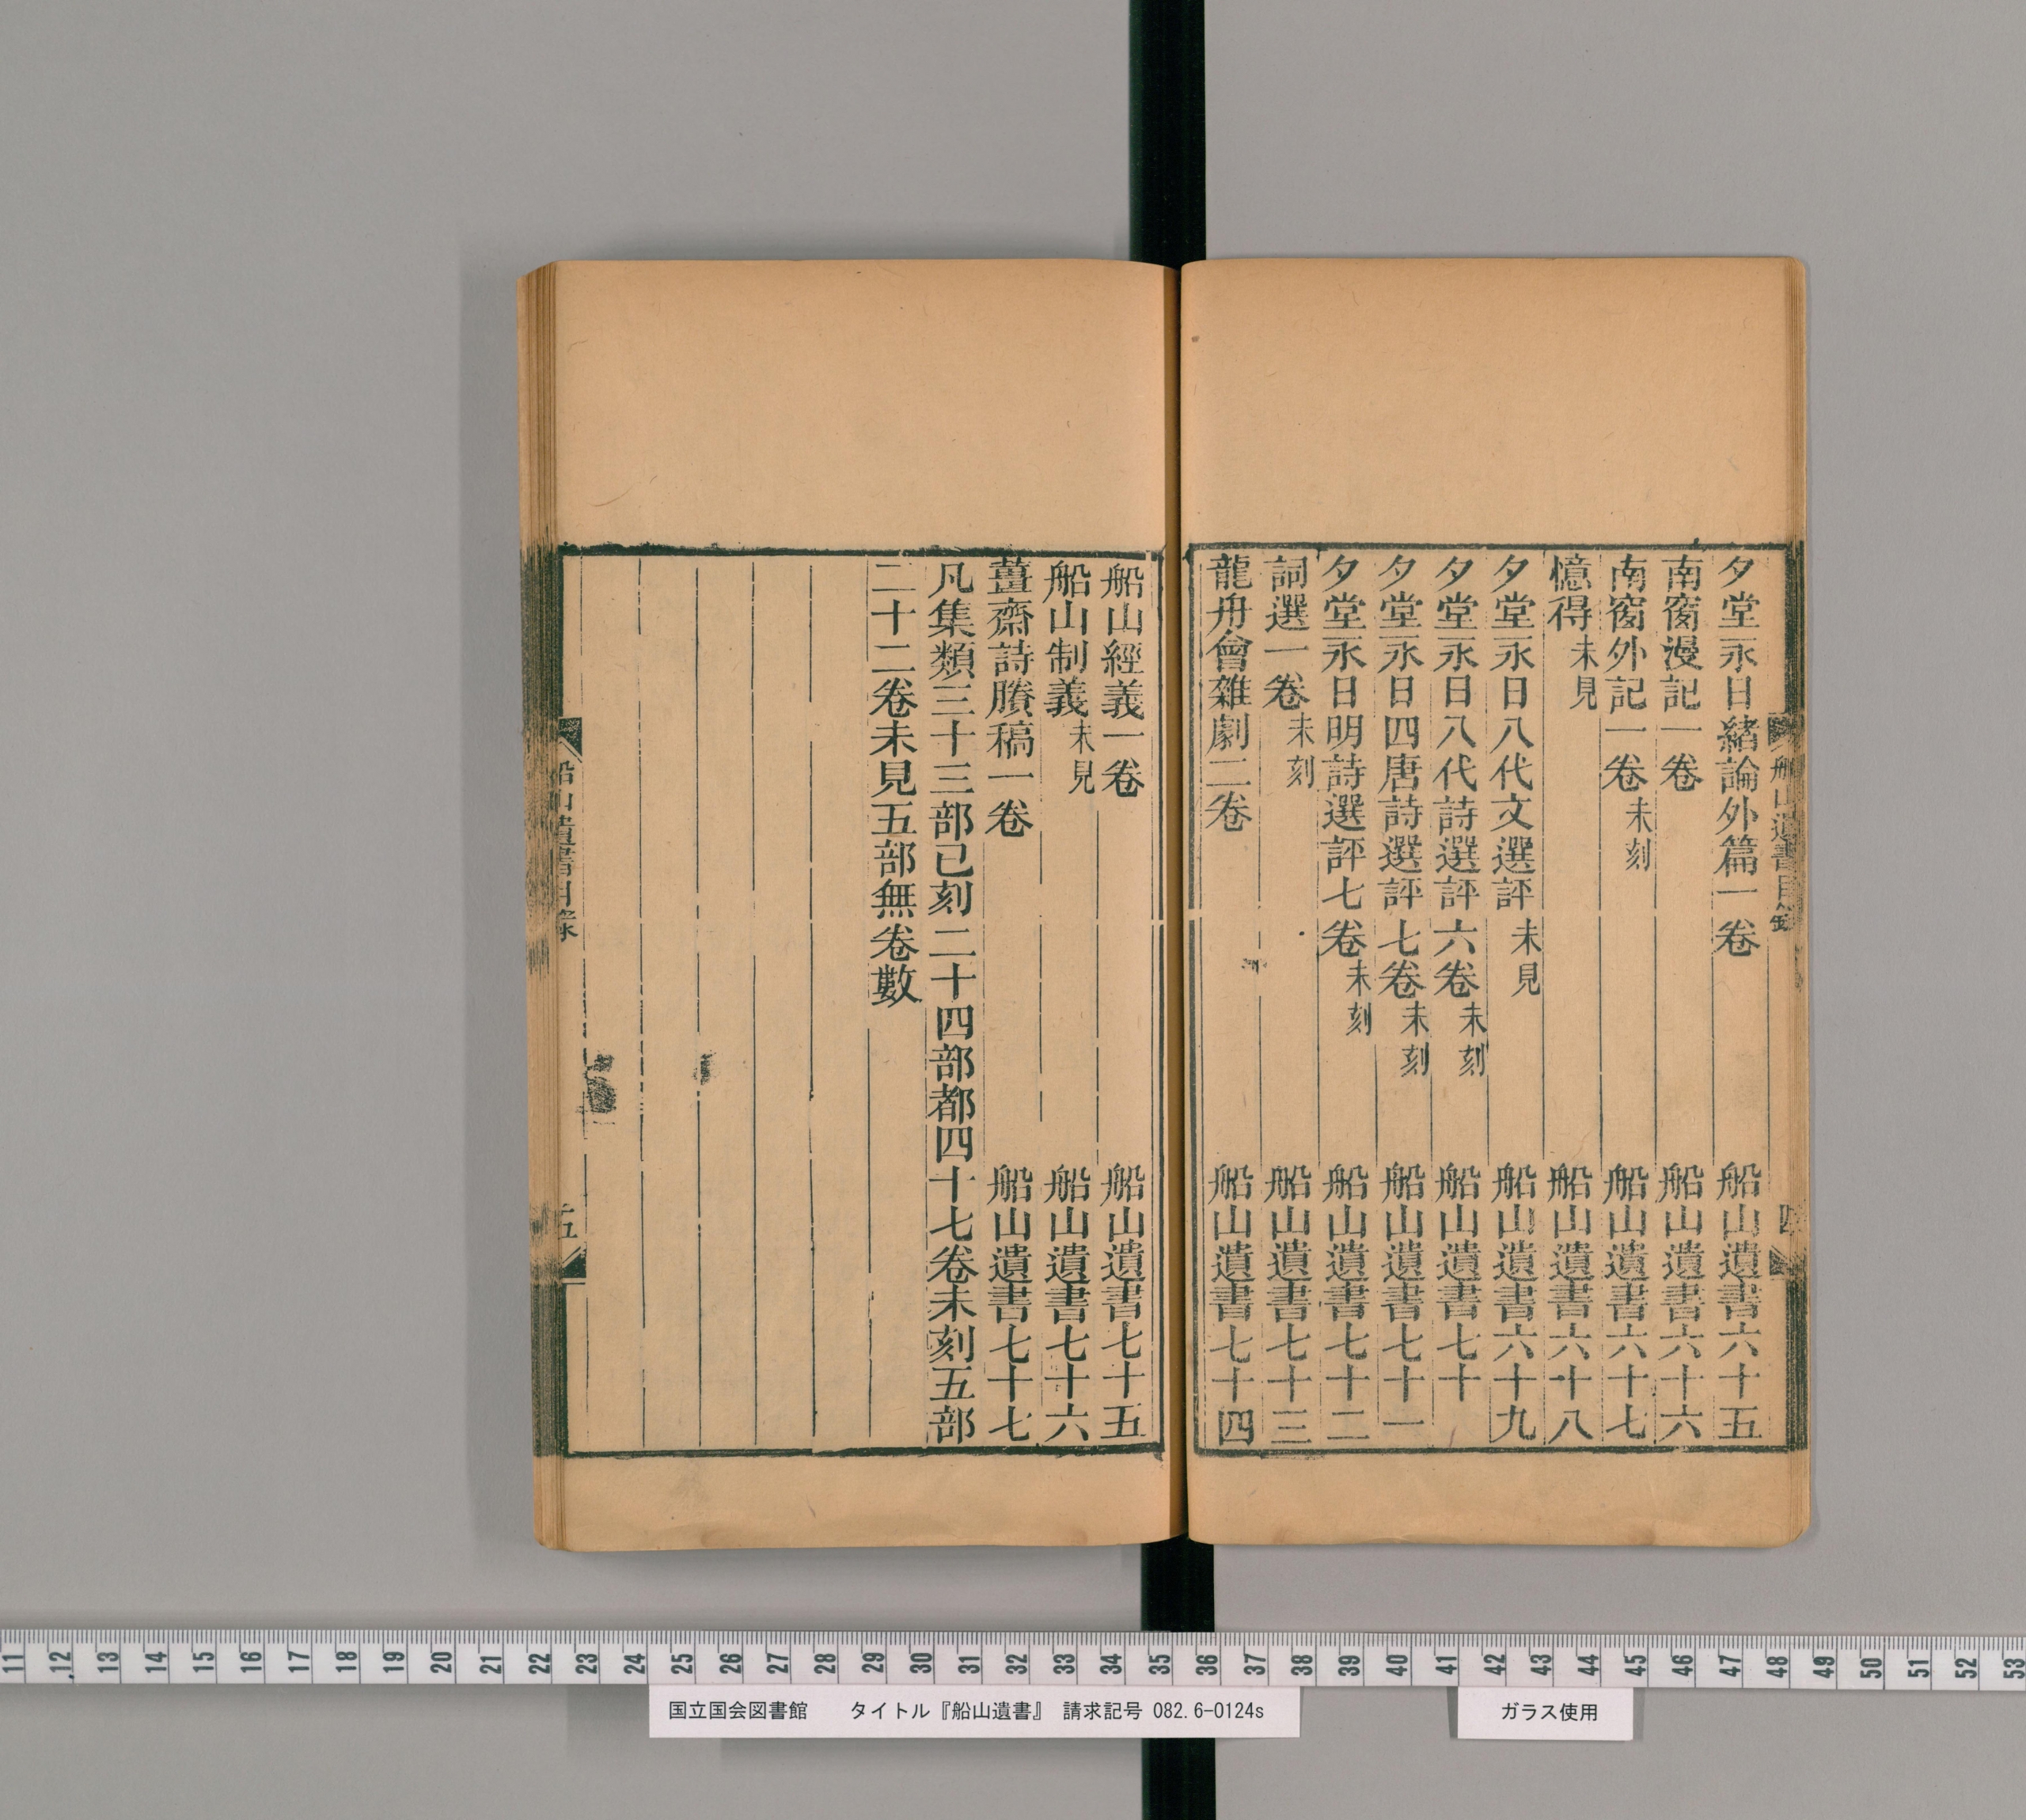 船山遺書目錄
四
夕堂永日緒論外篇一卷 船山遺書六十五
南窗漫記一卷 船山遺書六十六
南窗外記一卷未刻 船山遺書六十七
憶得未見 船山遺書六十八
夕堂永日八代文選評未見 船山遺書六十九
夕堂永日八代詩選評六卷未刻 船山遺書七十
夕堂永日四唐詩選評七卷未刻 船山遺書七十一
夕堂永日明詩選評七卷未刻 船山遺書七十二
詞選一卷未刻 船山遺書七十三
龍舟會雜劇二卷 船山遺書七十四
船山經義一卷 船山遺書七十五
船山制義未見 船山遺書七十六
薑齋詩賸稿一卷 船山遺書七十七
凡集類三十三部已刻二十四部都四十七卷未刻五部
二十二卷未見五部無卷數
船山遺書目錄
五
11 12 13 14 15 16 17 18 19 20 21 22 23 24 25 26 27 28 29 30 31 32 33 34 35 36 37 38 39 40 41 42 43 44 45 46 47 48 49 50 51 52 53
国立国会図書館 タイトル『船山遺書』 請求記号 082.6-0124s
ガラス使用